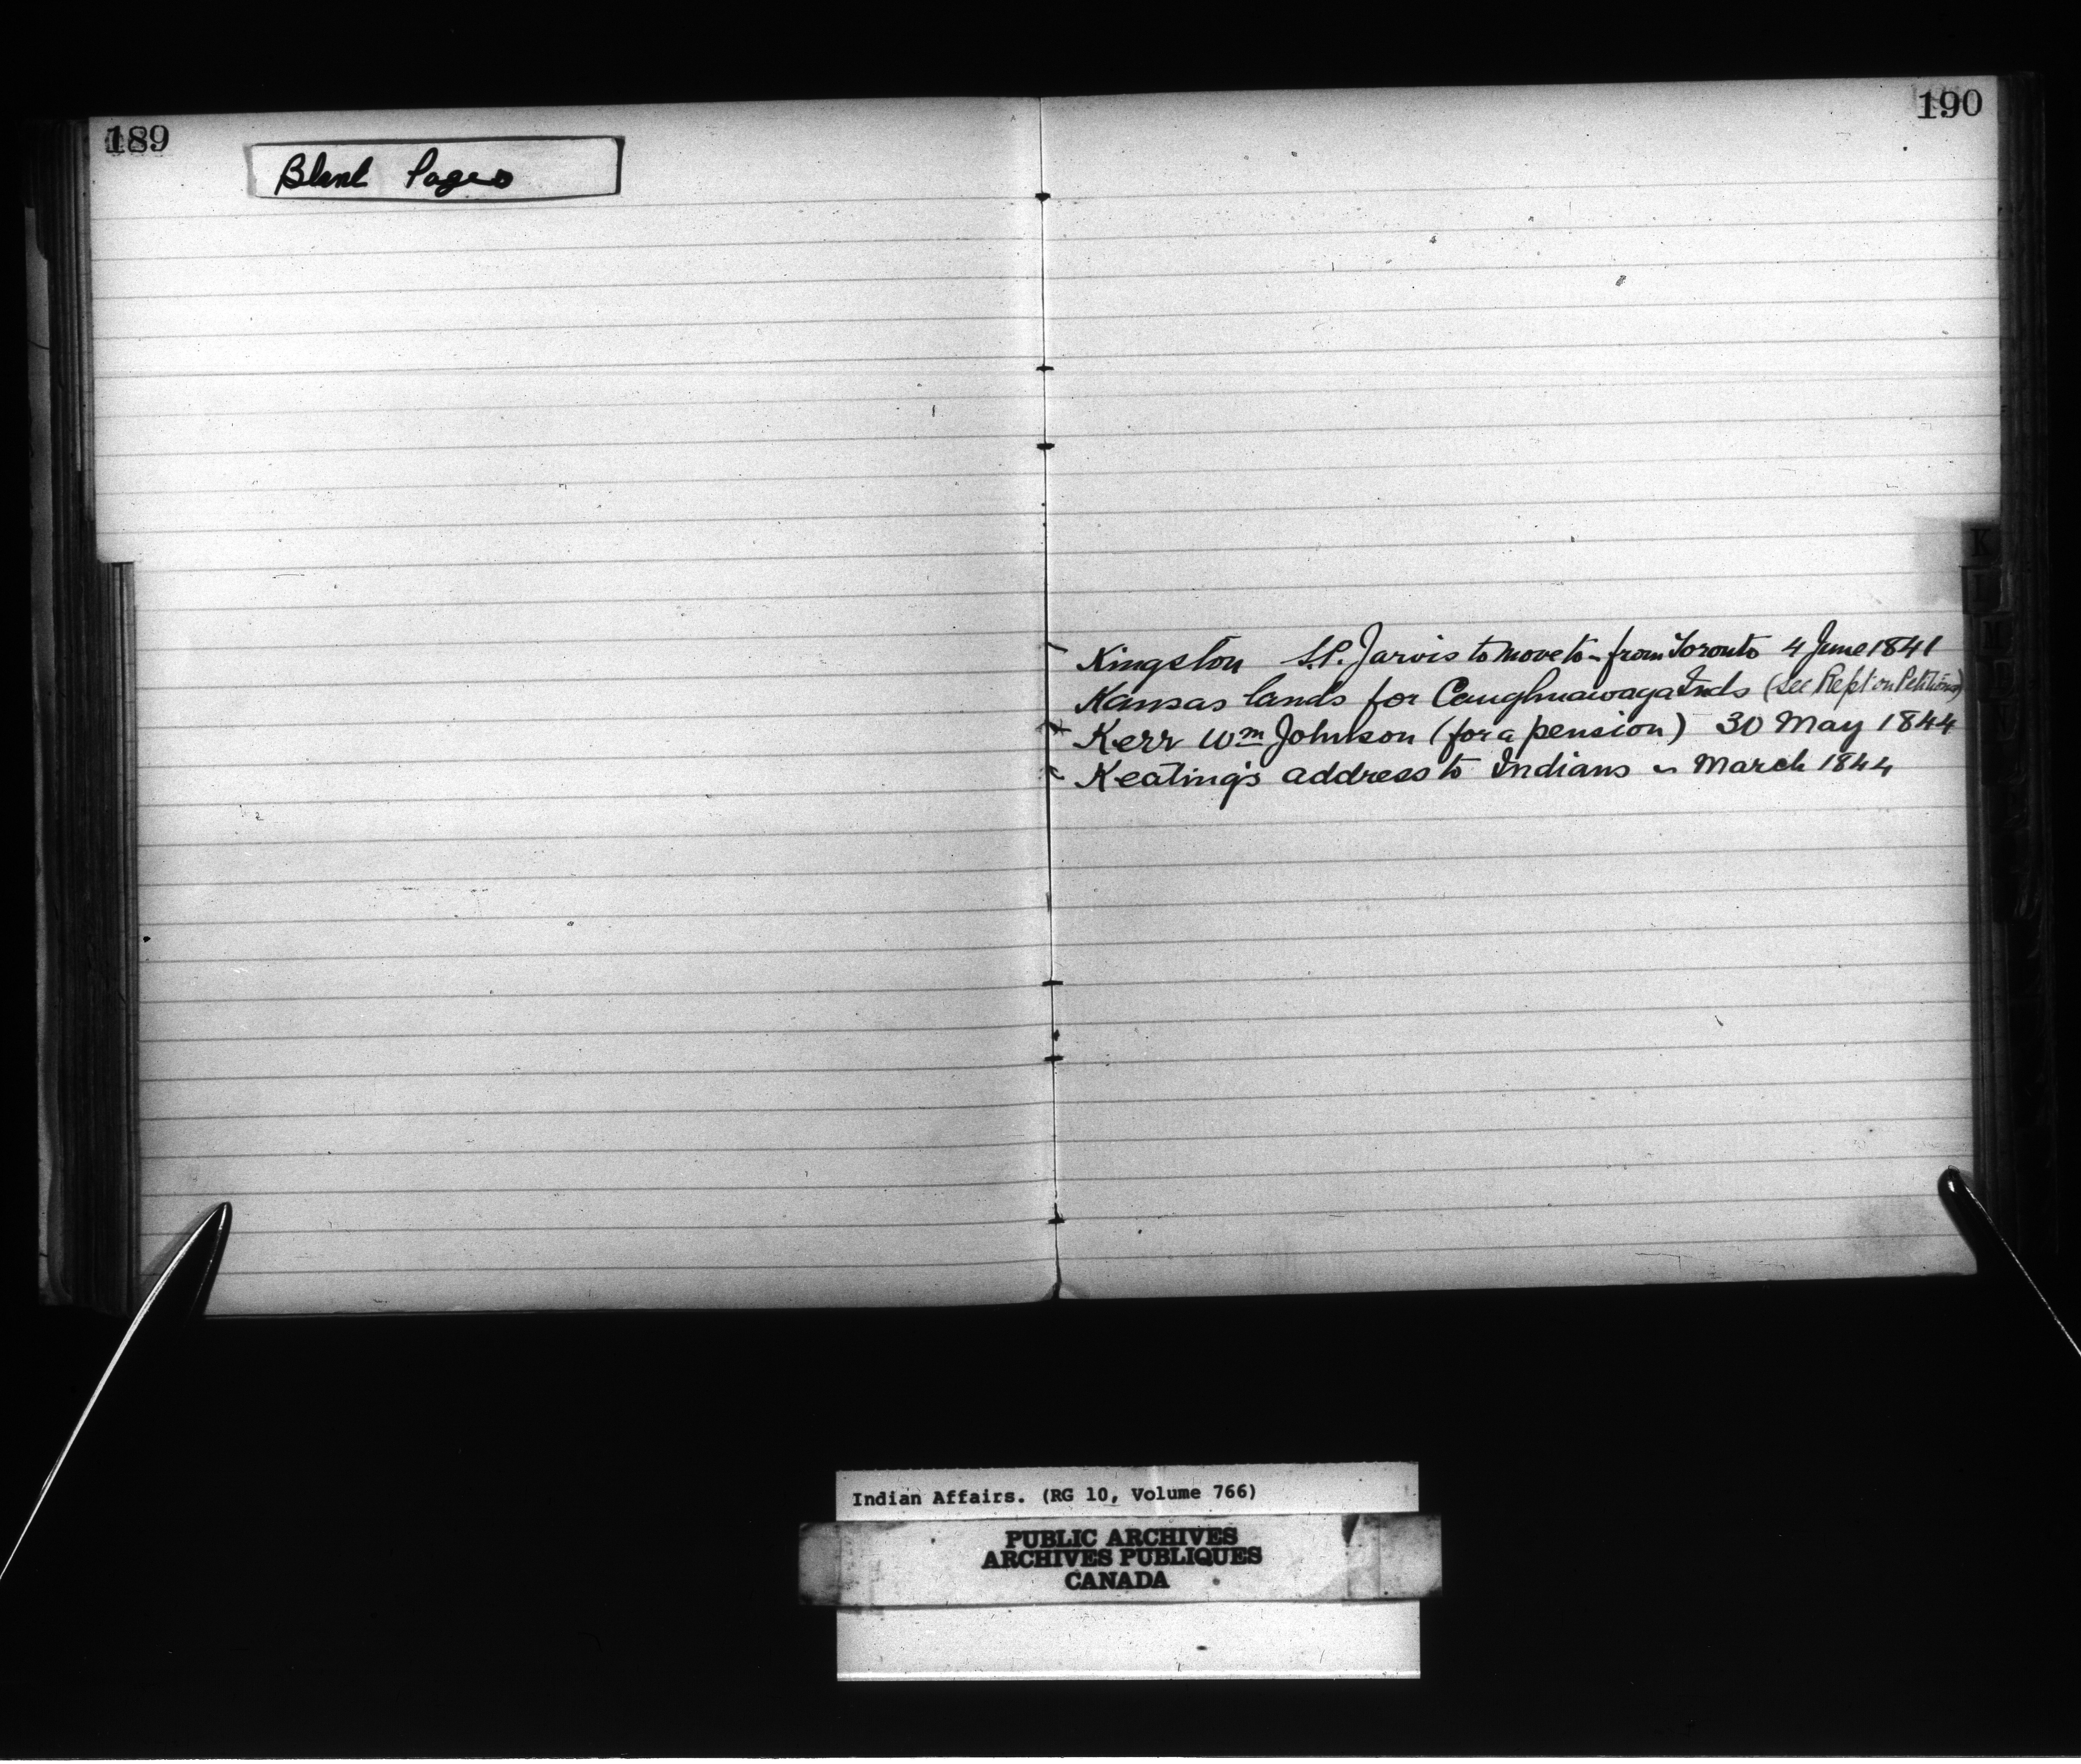 189
Blank Pages
190
K
Kingston S.P. Jarvis to move to - from Toronto 4 June 1841
Kansas lands for Caughnuawaga Inds (see Rept on Petitions)
Kerr Wm Johnson (for a pension) 30 May 1844
Keating's address to Indians ~ March 1844
Indian Affairs. (RG 10, Volume 766)
PUBLIC ARCHIVES
ARCHIVES PUBLIQUES
CANADA